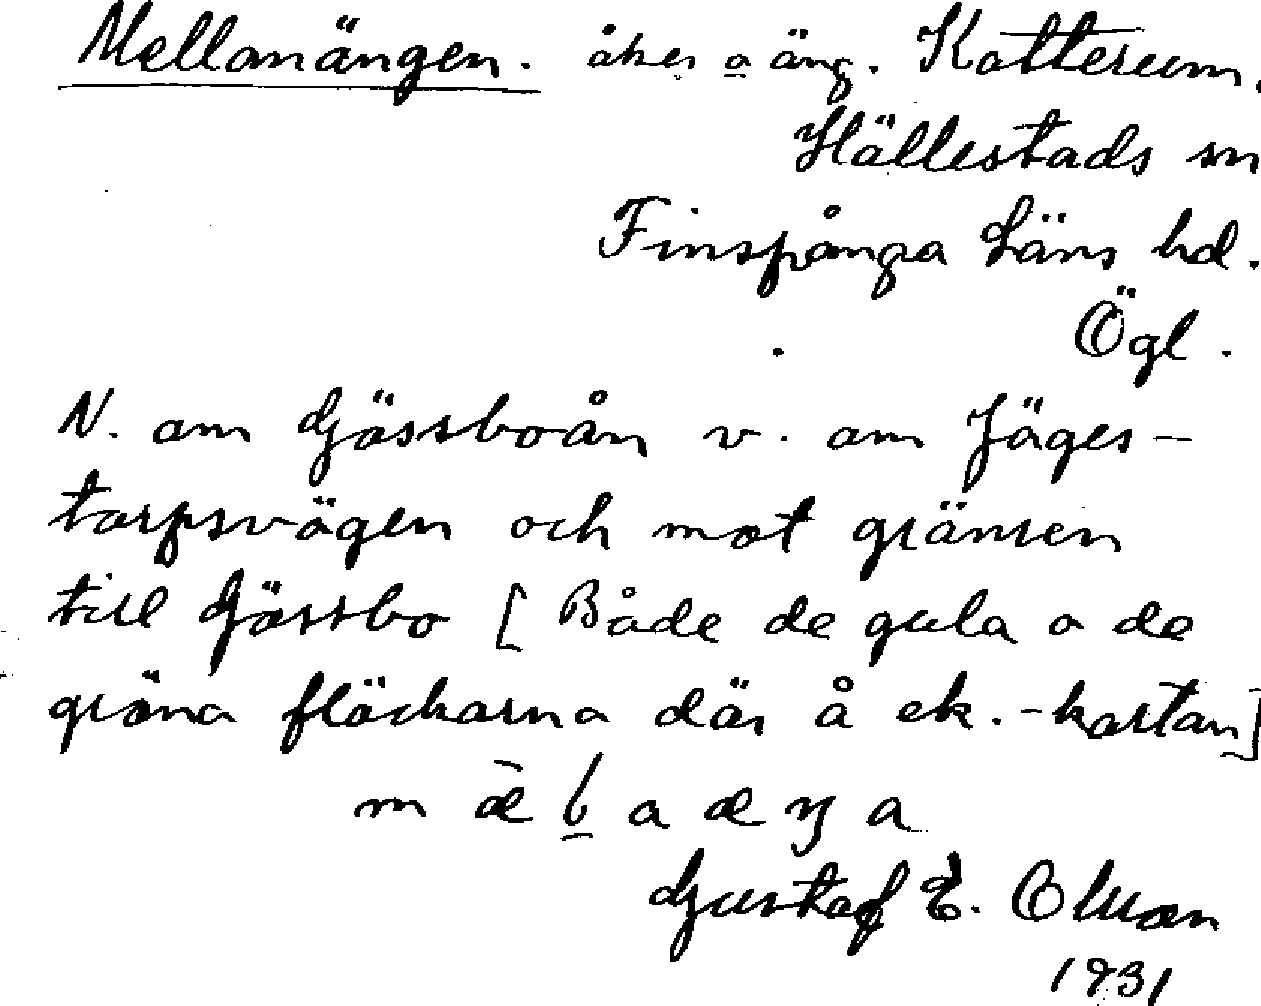 Mellanängen. åker o äng. Kotterum.
Hällestads sn
Finspånga läns hd.
Ögl.
N. om Gjässboån v. om Jäges-
torpsvägen och mot gränsen
till Gjässbo [Både de gula o de
gröna fläckarna där å ek.-kartan]
Gustaf E. Olsson
1931